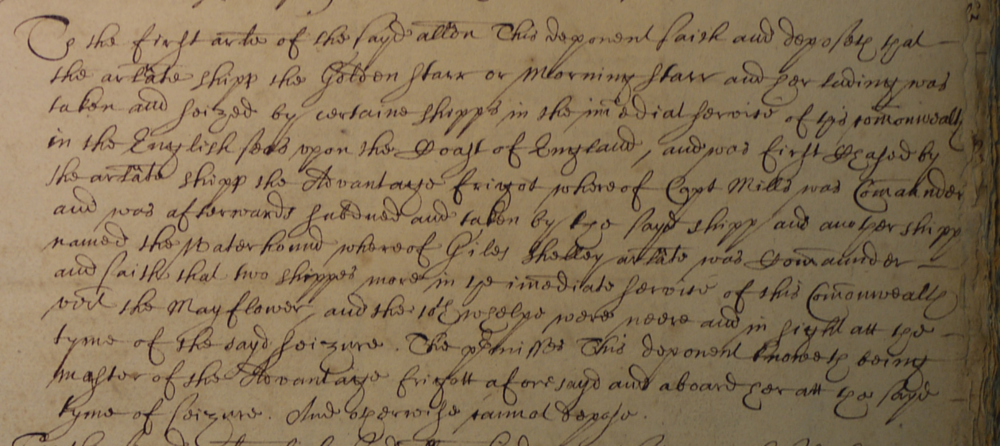 To the first arte of the sayd allōn This deponent saith and deposeth that
the arlate shipp the Golden starr or Morning starr and her lading was
taken and seized by certaine shipps in the im̄ediat service of this com̄onwealth
in the English seas upon the Coast of England, and was first chased by
the arlate shipp the Advantage frigot whereof Capt Mills was Com̄aunder
and was afterwards subdued and taken by the sayd shipp and another shipp
named the Waterhound whereof Giles Shelley arlate was Com̄aunder
and saith that two shippes more in ye im̄ediate service of this Com̄onwealth
vizt the Mayflower, and the whelpe were neere and in sight att the
tyme of the sayd seizure. The p̄misses This deponent knoweth being
master of the Advantage frigott aforesayd and aboard her att the sayd
tyme of seizure. And otherwise cannot depose.